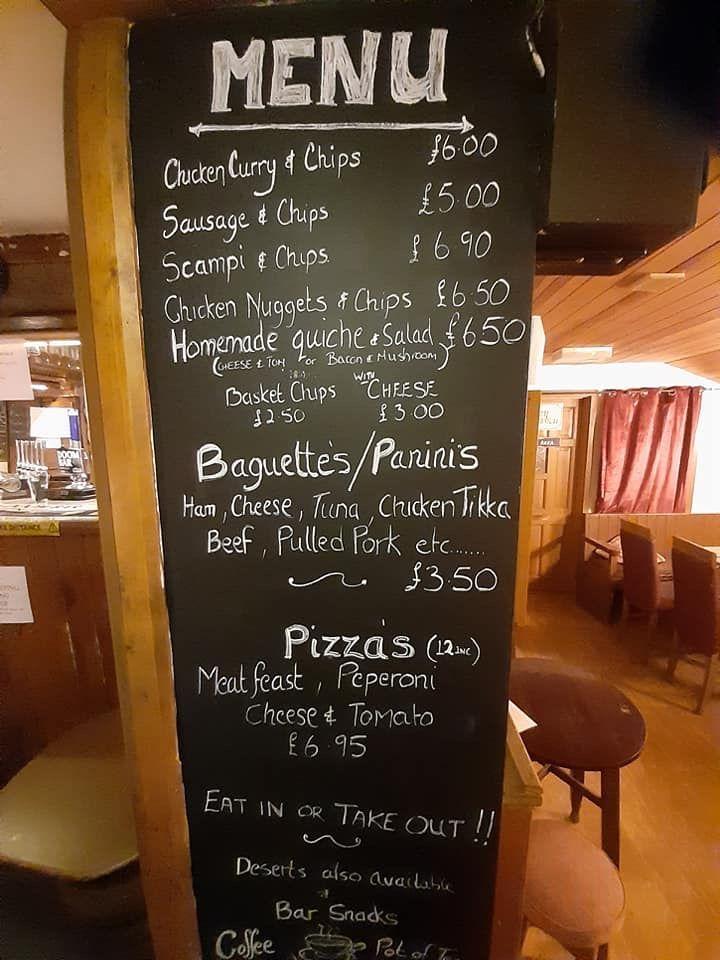 MENU
Chicken Curry & Chips £6.00
Sausage & Chips £5.00
Scampi & Chips. £6.90
Chicken Nuggets & Chips £6.50
Homemade quiche & Salad £650
(CHEESE & TOM or Bacon & Mushroom)
Basket Chips WITH CHEESE
£2.50 £3.00
Baguette's/Panini's
Ham, Cheese, Tuna, Chicken Tikka
Beef, Pulled Pork etc.......
£3.50
Pizza's (12inc)
Meat feast, Peperoni
Cheese & Tomato
£6.95
EAT IN OR TAKE OUT !!
Deserts also available
+
Bar Snacks
Coffee Pot of
DOOM BAR